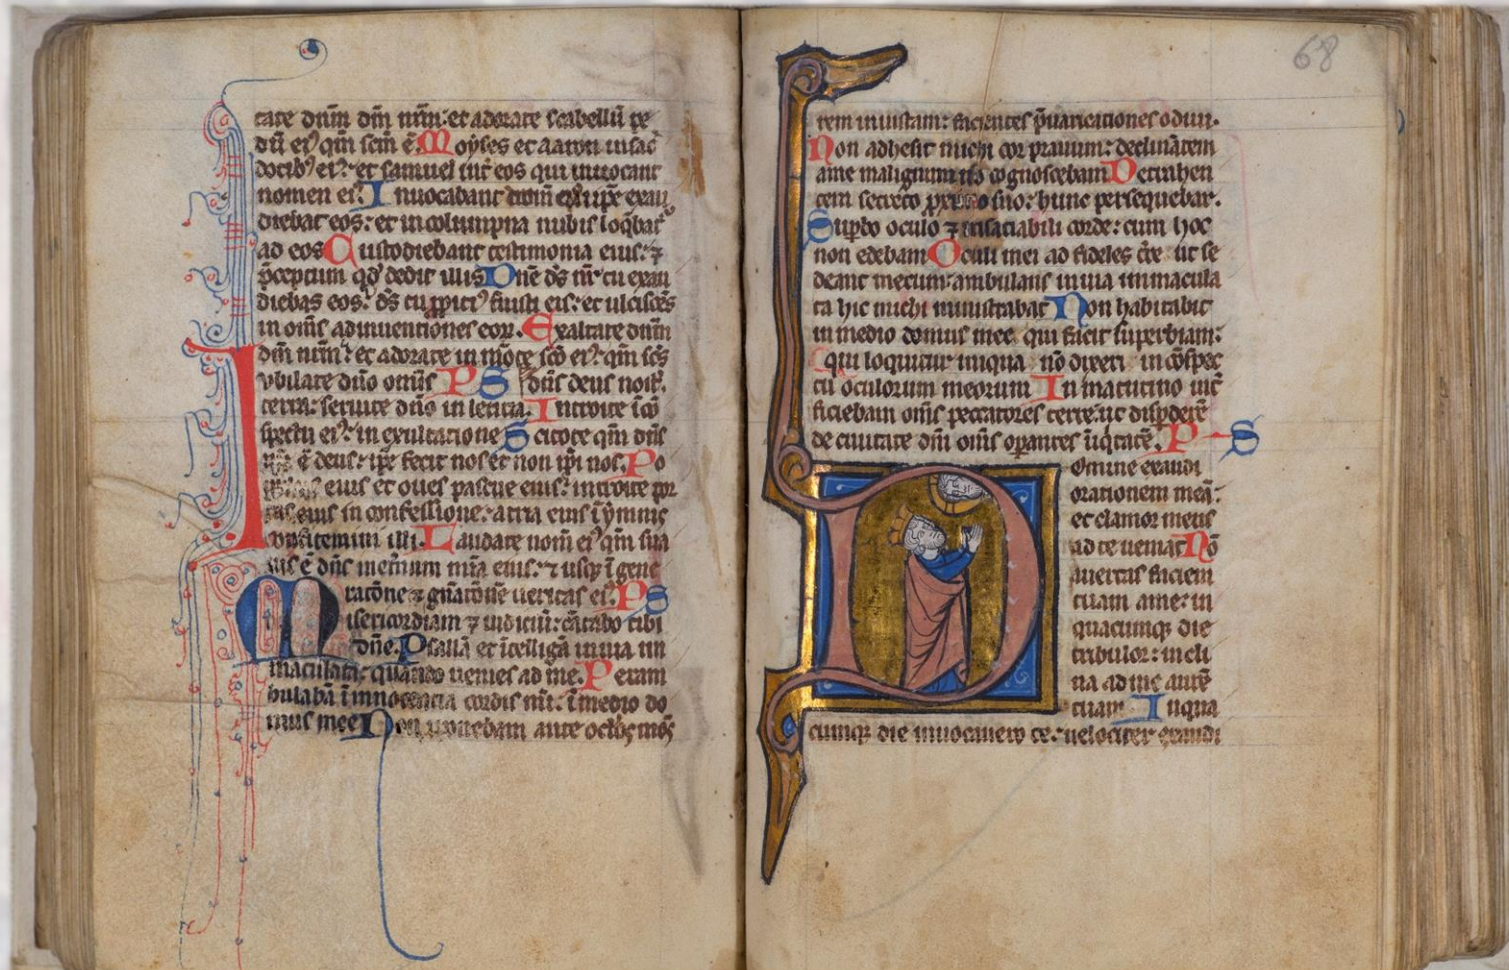 tate dnm dm nrm: et adorate scabellu pe
du ei' qm scm e. Moyses et aaron in sac
dotib' ei': et samuel int eos qui inuocant
nomen ei'. Inuocabant dnm et ipe exau
diebat eos: et in columpna nubis loqbat'
ad eos Custodiebant testimonia eius: ⁊
pceptum qd' dedit illis Dne ds nr tu exau
diebas eos: ds tu ppici' fuisti eis: et ulcisces
in oms adinuentiones eor. Exaltate dnm
dm nrm: et adorate in mote sco ei': qm scs
Iubilate dno omis PS dns deus nost.
terra: seruite dno in leticia. Introite i co
spectu ei': in exultatione Scitote qm dns
e deus: ipe fecit nos et non ipi nos. Po
eius et oues pascue eius: introite por
tas eius in confessione: atria eius i ymnis
confitemini illi. Laudate nom ei' qm sua
uis e dns in eternum mia eius: ⁊ usq; i gene
ratone ⁊ gnatone ueritas ei'. PS
Misericordiam ⁊ iudiciu: catabo tibi
dne. Psalla et itelliga in uia in
maculata: quando uenies ad me. Peram
bulaba i innocencia cordis mi: i medio do
mus mee Non pponebam ante oclos mos
68
rem iniustam: facientes puaricationes odiui.
Non adhesit michi cor prauum: declinatem
a me malignum no cognoscebam Detrahen
tem secreto proximo suo: hunc persequebar.
Supbo oculo ⁊ insatiabili corde: cum hoc
non edebam Oculi mei ad fideles tre ut se
deant mecum: ambulans in uia immacula
ta hic michi ministrabat Non habitabit
in medio domus mee qui facit superbiam:
qui loquitur iniqua no direxi in cospec
tu oculorum meorum In matutino int
ficiebam oms peccatores terre: ut dispdere
de ciuitate dni oms opantes iiqtate. PS
Domine exaudi
orationem mea:
et clamor meus
ad te ueniat No
auertas faciem
tuam a me: in
quacunq; die
tribulor: incli
na ad me aure
tuam In qua
cunq; die inuocauero te: uelociter exaudi